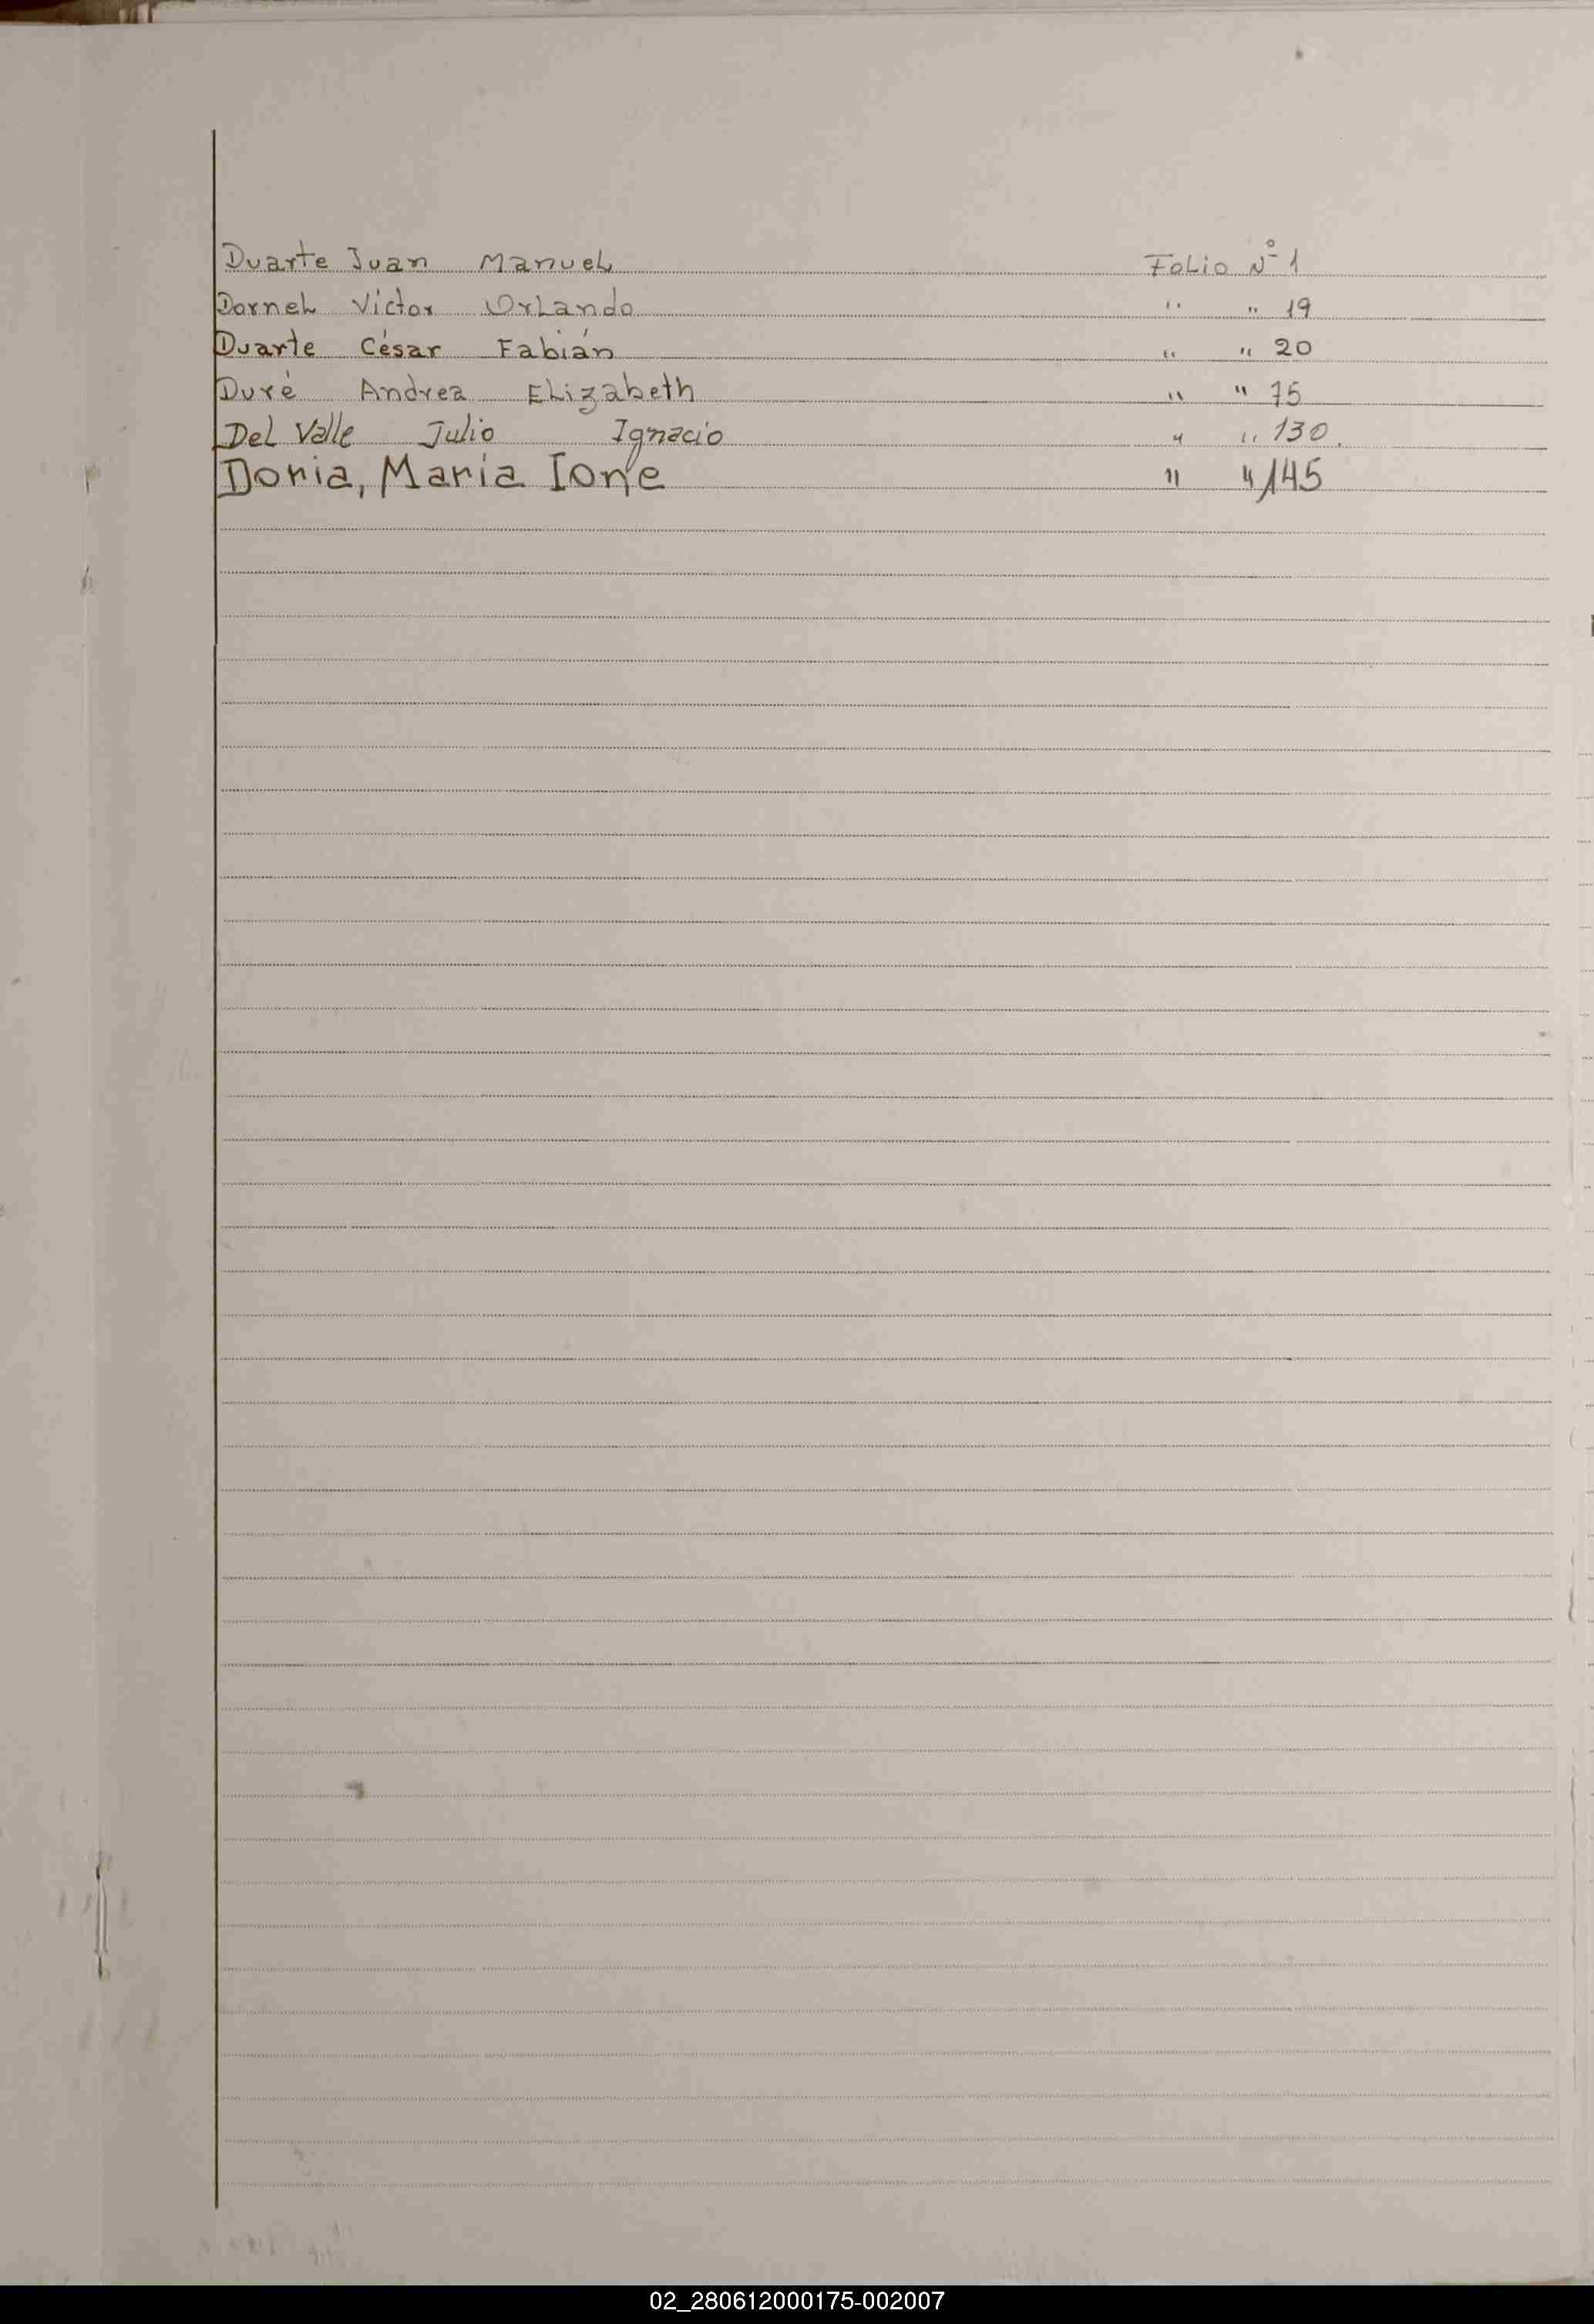 Duarte Juan Manuel Folio Nº 1
Dornel Victor Orlando " " 19
Duarte César Fabián " " 20
Duré Andrea Elizabeth " " 75
Del Valle Julio Ignacio " " 130.
Doria, Maria Ione " " 145
02_280612000175-002007